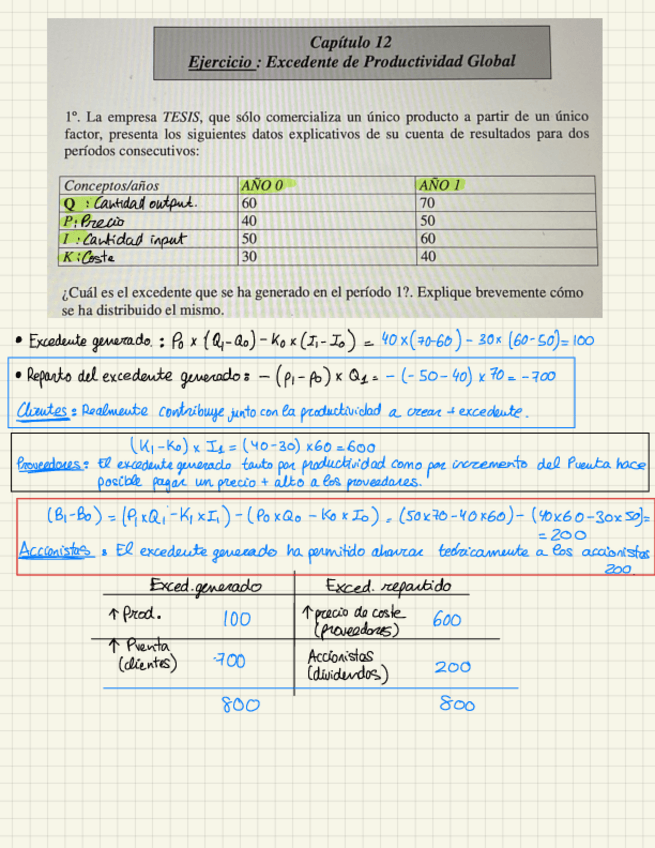 Capítulo 12
Ejercicio : Excedente de Productividad Global
1º. La empresa TESIS, que sólo comercializa un único producto a partir de un único
factor, presenta los siguientes datos explicativos de su cuenta de resultados para dos
períodos consecutivos:
Conceptos/años AÑO 0 AÑO 1
Q : Cantidad output. 60 70
P: Precio 40 50
I : Cantidad input 50 60
K : Coste 30 40
¿Cuál es el excedente que se ha generado en el período 1?. Explique brevemente cómo
se ha distribuido el mismo.
• Excedente generado : P0 x (Q1-Q0) - K0 x (I1-I0) = 40x(70-60) - 30x (60-50)= 100
• Reparto del excedente generado: - (P1-P0) x Q1 = - (-50-40) x 70 = -700
Clientes : Realmente contribuye junto con la productividad a crear + excedente.
(K1-K0) x I1 = (40-30) x60 = 600
Proveedores : El excedente generado tanto por productividad como por incremento del Pventa hace
posible pagar un precio + alto a los proveedores.
(B1-B0) = (P1xQ1 - K1xI1) - (P0xQ0 - K0xI0) = (50x70-40x60) - (40x60-30x50)=
= 200
Accionistas : El excedente generado ha permitido ahorrar teóricamente a los accionistas
200
Exced. generado Exced. repartido
↑ Prod. 100 ↑ precio de coste (proveedores) 600
↑ Pventa (clientes) -700 Accionistas (dividendos) 200
800 800